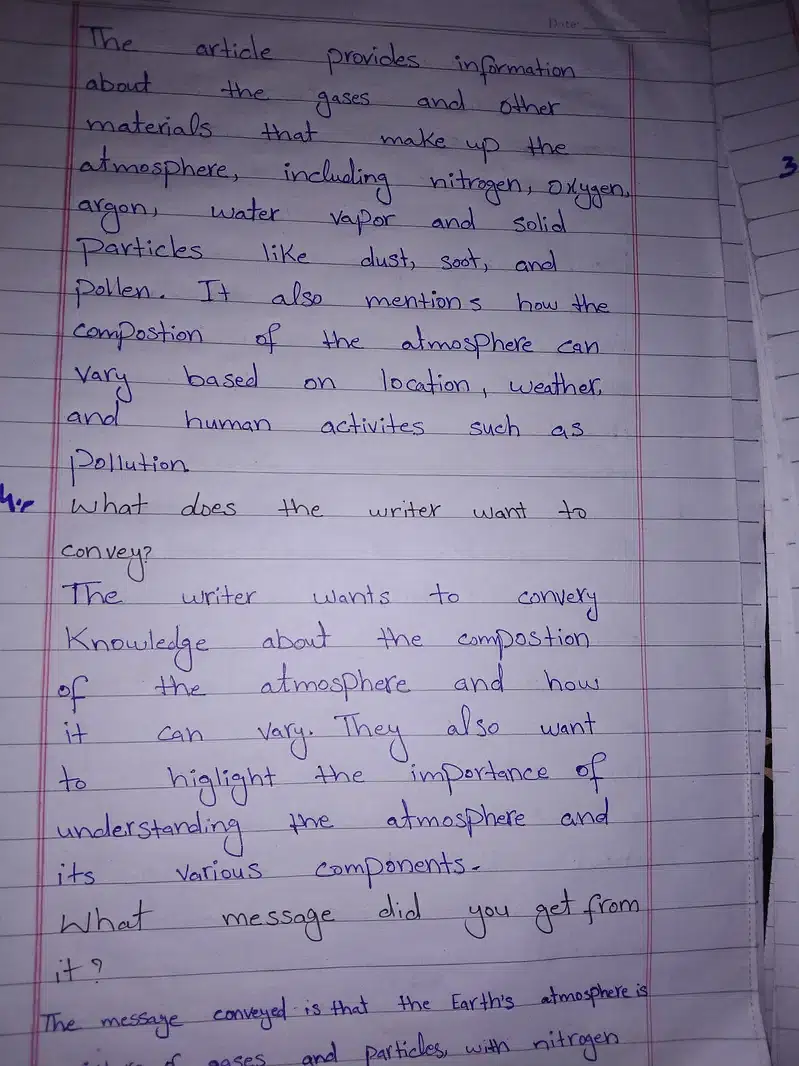 Date:
The article provides information
about the gases and other
materials that make up the
atmosphere, including nitrogen, oxygen,
argon, water vapor and solid
particles like dust, soot, and
pollen. It also mentions how the
compostion of the atmosphere can
vary based on location, weather,
and human activites such as
pollution
What does the writer want to
convey?
The writer wants to convery
Knowledge about the compostion
of the atmosphere and how
it can vary. They also want
to higlight the importance of
understanding the atmosphere and
its various components.
What message did you get from
it?
The message conveyed is that the Earth's atmosphere is
of gases and particles, with nitrogen
3